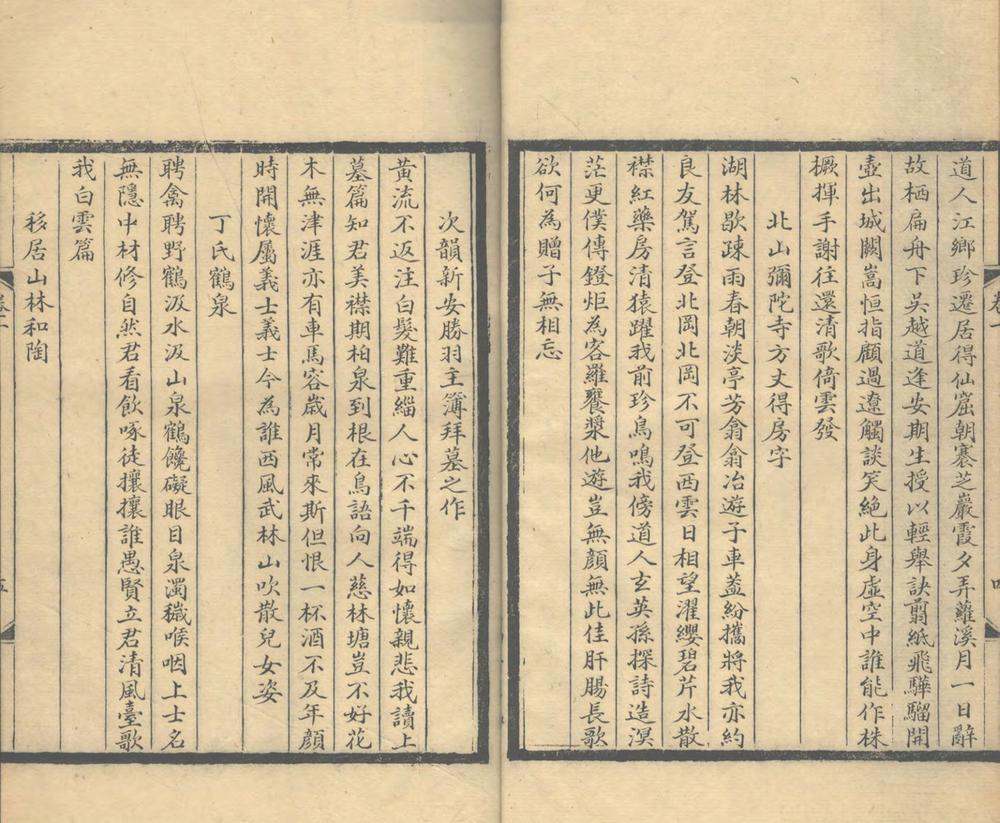 道人江鄉珍遷居得仙窟朝褰芝巖霞夕弄蘿溪月一日辭
故栖扁舟下吳越道逢安期生授以輕舉訣剪紙飛驊騮開
壺出城闕嵩恒指顧過遼觸談笑絕此身虛空中誰能作株
橛揮手謝往還清歌倚雲發
北山彌陀寺方丈得房字
湖林歇疎雨春朝淡亭芳翕翕冶遊子車蓋紛攜將我亦約
良友駕言登北岡北岡不可登西雲日相望濯纓碧芹水散
襟紅藥房清猿躍我前珍鳥鳴我傍道人玄英孫探詩造溟
茫更僕傳鐙炬為客羅饔漿他遊豈無顏無此佳肝腸長歌
欲何為贈子無相忘
次韻新安勝羽主簿拜墓之作
黃流不返注白髮難重緇人心不千端得如懷親悲我讀上
墓篇知君美襟期柏泉到根在鳥語向人慈林塘豈不好花
木無津涯亦有車馬容歲月常來斯但恨一杯酒不及年顏
時開懷屬義士義士今為誰西風武林山吹散兒女姿
丁氏鶴泉
聘禽聘野鶴汲水汲山泉鶴饞礙眼目泉濁穢喉咽上士名
無隱中材修自然君看飲啄徒攘攘誰愚賢立君清風臺歌
我白雲篇
移居山林和陶